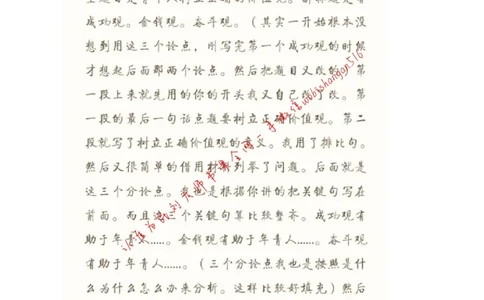 成功观。金钱观。奋斗观。（其实一开始根本没
想到用这三个论点，刚写完第一个成功观的时候
才想起后面那两个论点。然后把题目又改的。第
一段上来就先用的你的开头我又自己改了改。第
一段的最后一句话点题要树立正确价值观。第二
段就写了树立正确价值观的意义。我用了排比句。
然后又很简单的借用材料列举了问题。后面就是
这三个分论点。我也是根据你讲的把关键句写在
前面。而且这三个关键句算比较整齐。成功观有
助于年青人……。金钱观有助于年青人……。奋斗观
有助于年青人……。（三个分论点我也是按照是什
么为什么怎么办来分析。这样比较好填充）然后